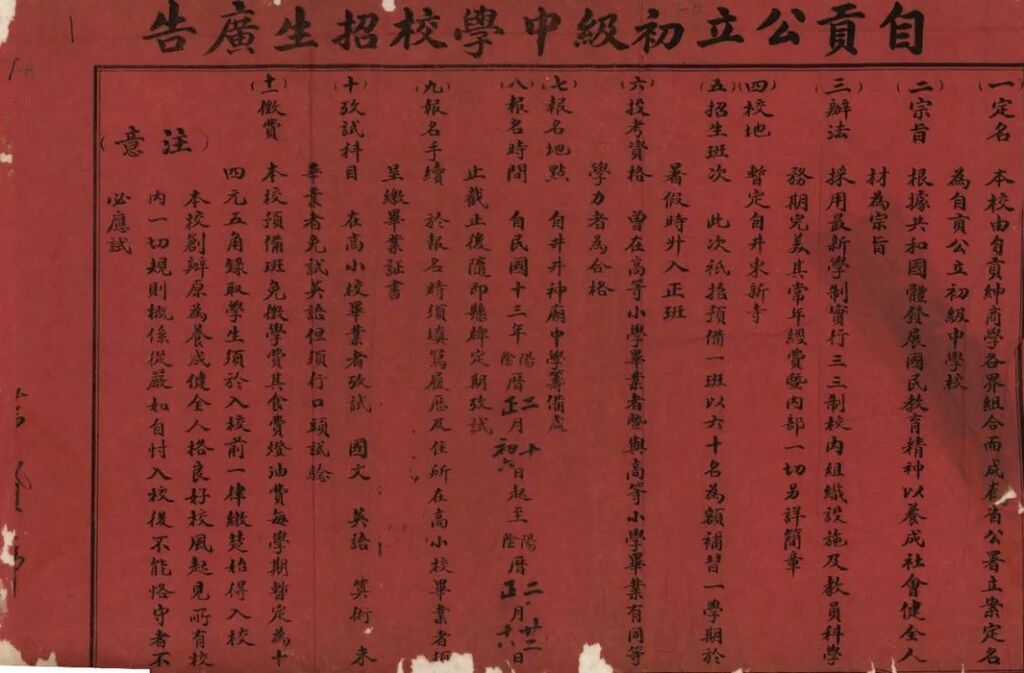 自貢公立初級中學校招生廣告
(一)定名 本校由自貢紳商學各界組合而成在省公署立案定名
為自貢公立初級中學校
(二)宗旨 根據共和國體發展國民教育精神以養成社會健全人
材為宗旨
(三)辦法 採用最新學制實行三三制校內組織設施及教員科學
務期完美其常年經費暨內部一切另詳簡章
(四)校地 暫定自井東新寺
(五)招生班次 此次祇招預備一班以六十名為額補習一學期於
暑假時升入正班
(六)投考資格 曾在高等小學畢業者暨與高等小學畢業有同等
學力者為合格
(七)報名地點 自井井神廟中學籌備處
(八)報名時間 自民國十三年陽陰曆二正月十初六日起至陽陰曆二正月廿二十八日
止截止後隨即懸牌定期攷試
(九)報名手續 於報名時須填寫履歷及住所在高小校畢業者須
呈繳畢業証書
(十)攷試科目 在高小校畢業者攷試 國文 英語 算術 未
畢業者免試英語但須行口頭試驗
(十一)徵費 本校預備班免徵學費其食費燈油費每學期暫定為十
四元五角錄取學生須於入校前一律繳楚始得入校
(注意) 本校創辦原為養成健全人格良好校風起見所有校
內一切規則概係從嚴如自忖入校後不能恪守者不
必應試